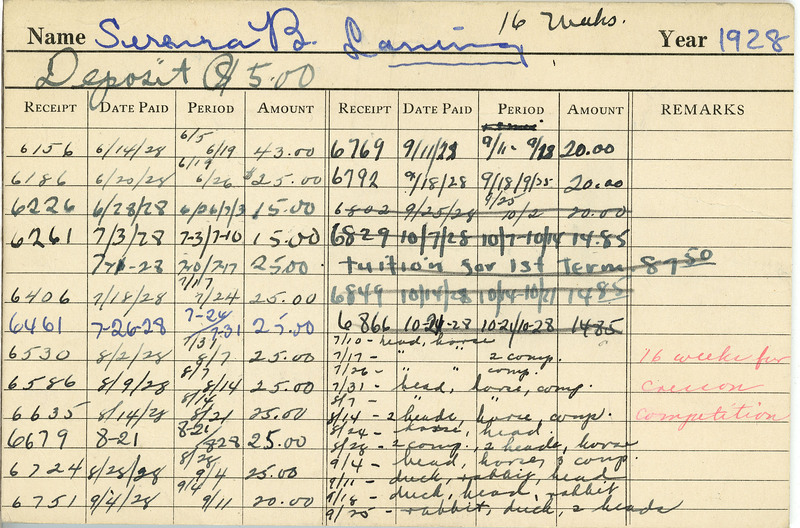 16 Weeks.
Name Serena B. Laning Year 1928
Deposit $15.00
RECEIPT DATE PAID PERIOD AMOUNT RECEIPT DATE PAID PERIOD AMOUNT REMARKS
6156 6/14/28 6/5 6/19 43.00 6769 9/11/28 9/11 - 9/18 20.00
6186 6/20/28 6/19 6/26 $25.00 6792 9/18/28 9/18/9/25 20.00
6226 6/28/28 6/26/7/3 15.00 6802 9/25/28 9/25 10/2 20.00
6261 7/3/28 7-3/7-10 15.00 6829 10/7/28 10/7-10/14 14.85
7-11-28 7/10/7/17 25.00 Tuition for 1st Term 87.50
6406 7/18/28 7/17 7/24 25.00 6849 10/14/28 10/14-10/21 14.85
6461 7-26-28 7-24/7-31 25.00 6866 10-21-28 10-21/10-28 14.85
7/10 - head, horse
6530 8/2/28 7/31 8/7 25.00 7/17 - " " 2 comp. 16 weeks for
7/26 - " " comp.
6586 8/9/28 8/7 8/14 25.00 7/31 - head, horse, comp. Cresson
8/7 - " "
6635 8/14/28 8/14 8/21 25.00 8/14 - 2 heads, horse, comp. competition
8/24 - horse, head.
6679 8-21 8-21 8-28 25.00 8/28 - 2 comp., 2 heads, horse
6724 8/28/28 8/28 9/4 25.00 9/4 - head, horse, 3 comp.
9/11 - duck, rabbit, head
6751 9/4/28 9/4 9/11 20.00 9/18 - duck, head, rabbit
9/25 - rabbit, duck, 2 heads